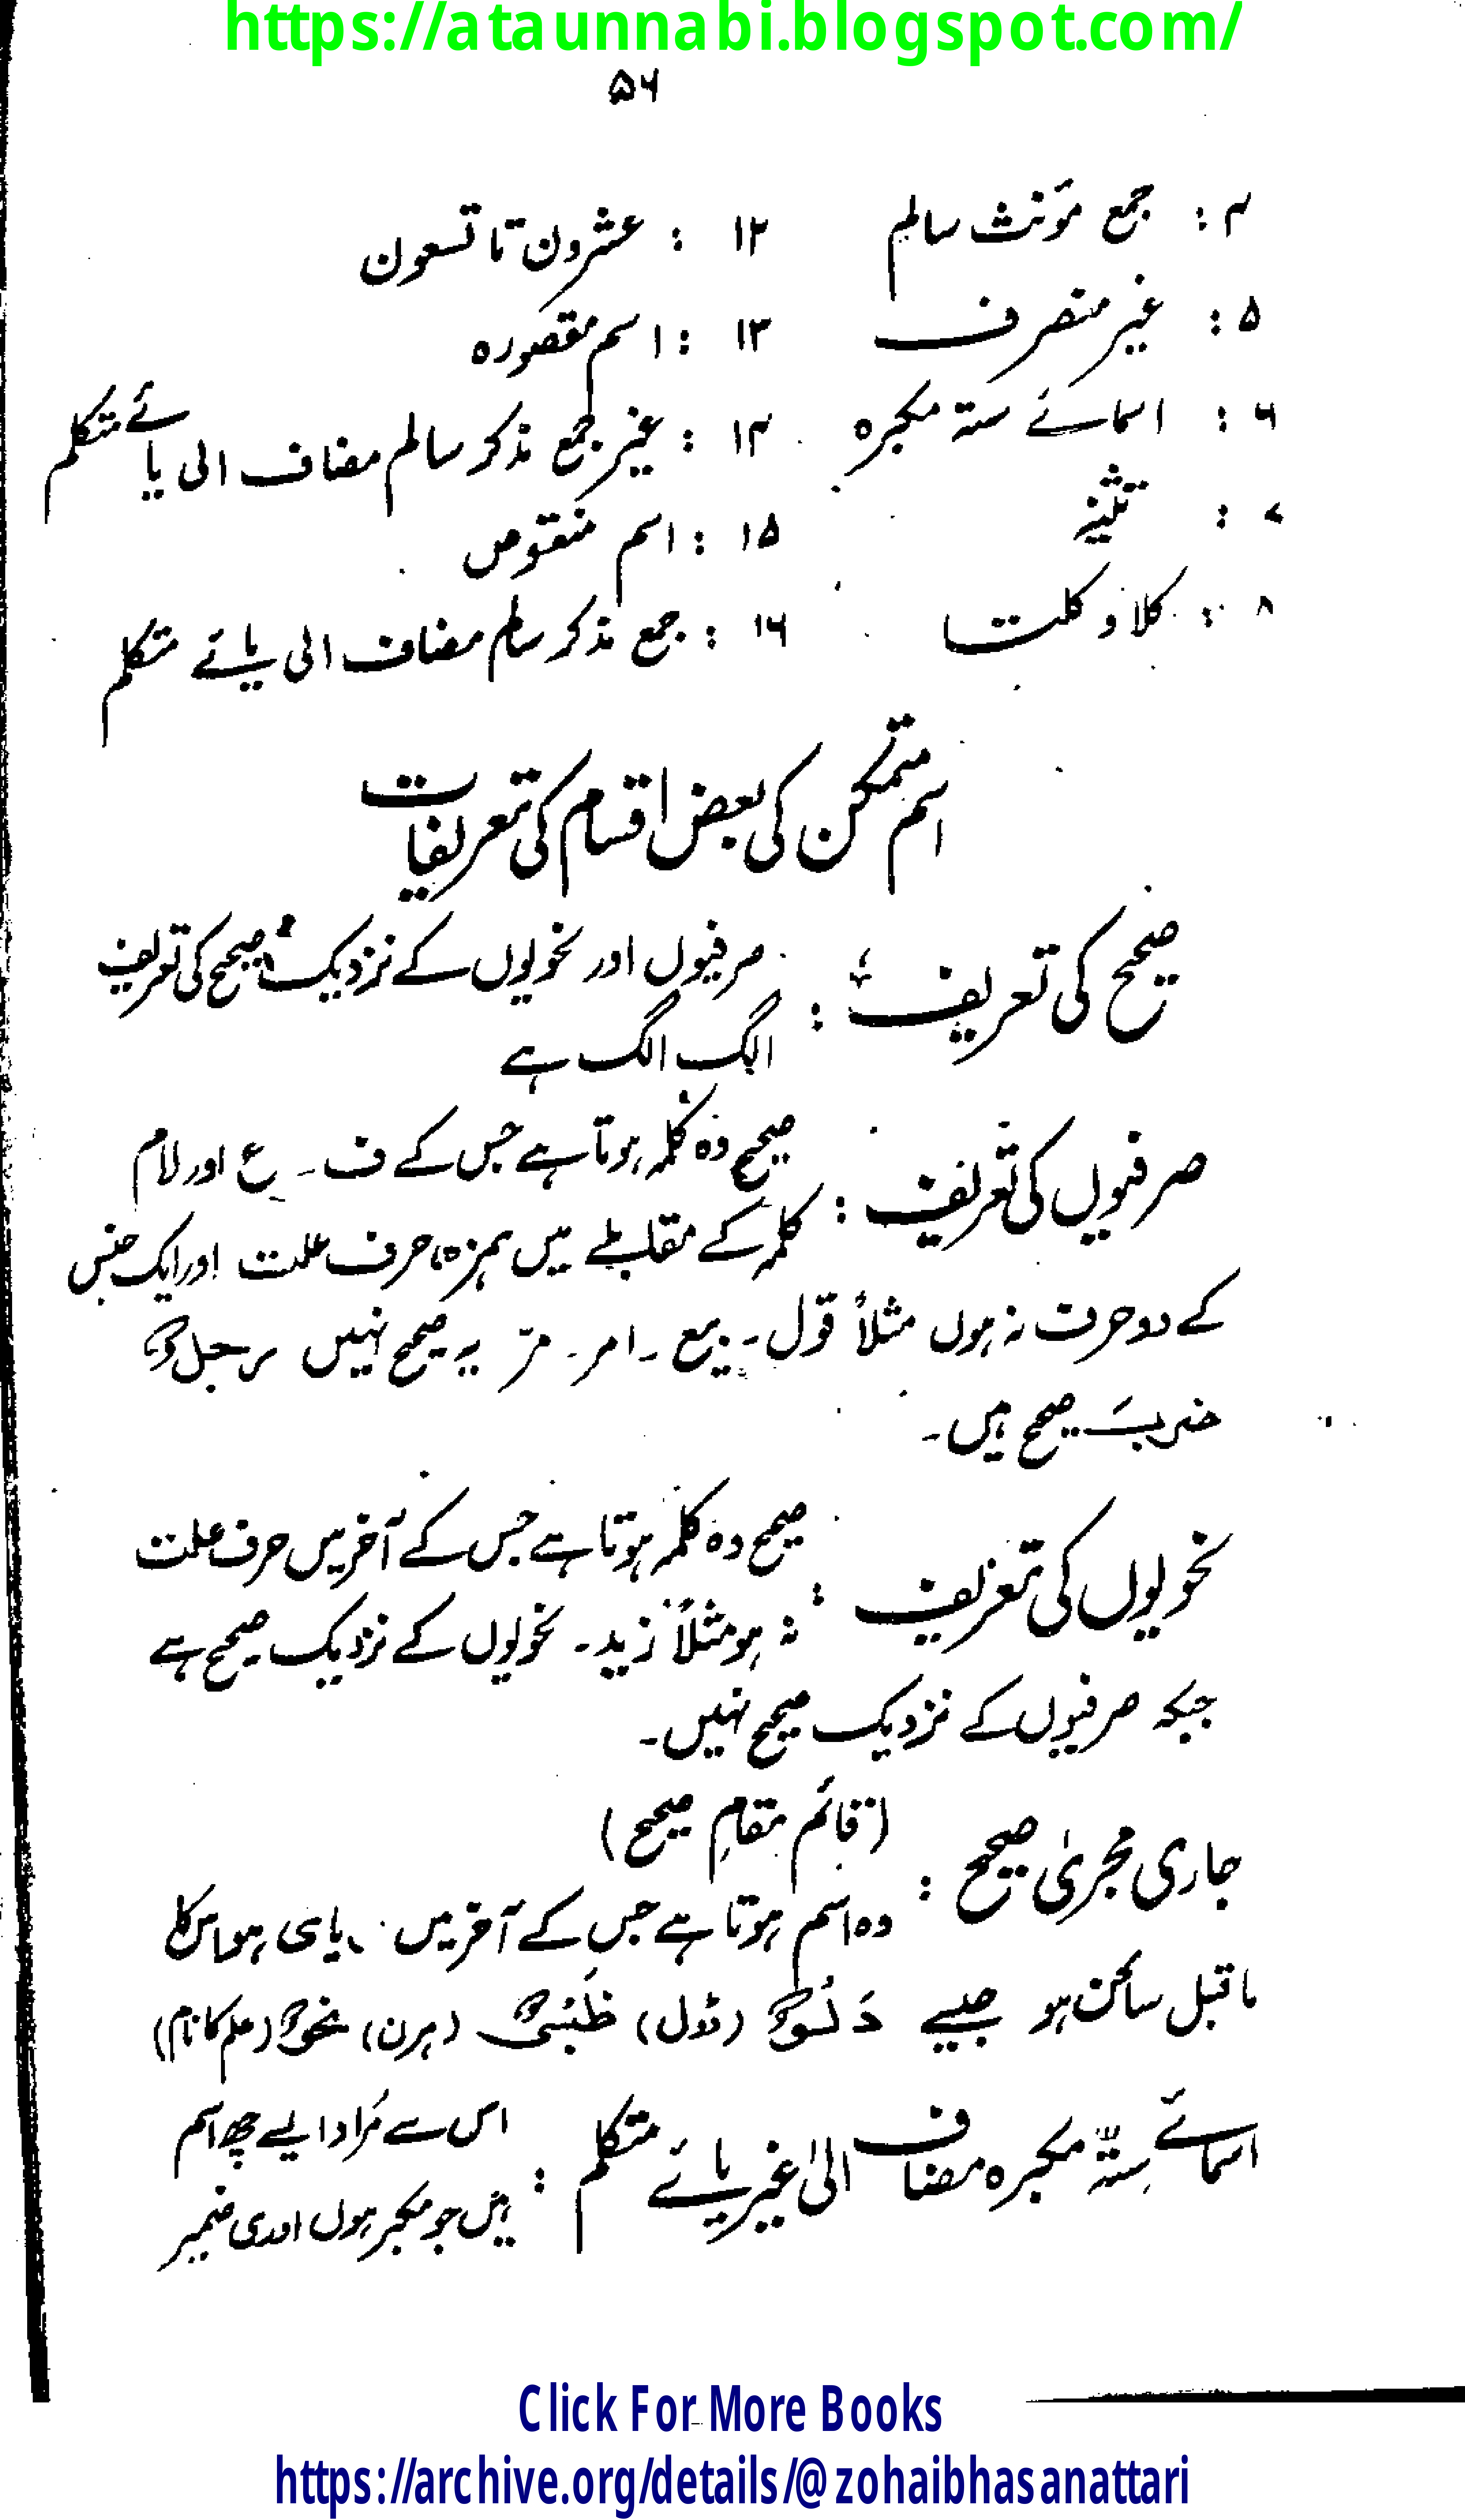 https://ataunnabi.blogspot.com/
۵۶
۴ : جمع مؤنث سالم ۱۲ : عشرون تا تسعون
۵ : غیر منصرف ۱۳ : اسم مقصورہ
۶ : اسمائے ستہ مکبرہ ۱۴ : غیر جمع مذکر سالم مضاف الی یائے متکلم
۷ : تثنیہ ۱۵ : اسم منقوص
۸ : کلا و کلت ۱۶ : جمع مذکر سالم مضاف الی یائے متکلم
اسم متمکن کی بعض اقسام کی تعریفات
صحیح کی تعریف : صرفیوں اور نحویوں کے نزدیک صحیح کی تعریف
الگ الگ ہے
صرفیوں کی تعریف : صحیح وہ کلمہ ہوتا ہے جس کے ف ۔ ع اور لام
کلمہ کے مقابلے میں ہمزہ، حرف علت اور ایک جنس
کے دو حرف نہ ہوں مثلاً قول ۔ بیع ۔ امر ۔ مرّ یہ صحیح نہیں رجلٌ
ضربَ صحیح ہیں۔
نحویوں کی تعریف : صحیح وہ کلمہ ہوتا ہے جس کے آخر میں حرف علت
نہ ہو مثلاً زید ۔ نحویوں کے نزدیک صحیح ہے
جبکہ صرفیوں کے نزدیک صحیح نہیں۔
جاری مجریٰ صحیح : (قائم مقامِ صحیح)
وہ اسم ہوتا ہے جس کے آخر میں و یا ی ہو اس کا
ما قبل ساکن ہو جیسے دَلْوٌ (ڈول) ظَبْیٌ (ہرن) نحوٌ (علم کا نام)
اسمائے ستّہ مکبرہ مضاف الیٰ غیر یائے متکلم : اس سے مُراد ایسے چھ اسم
ہیں جو مکبر ہوں اور ی ضمیر
Click For More Books
https://archive.org/details/@zohaibhasanattari